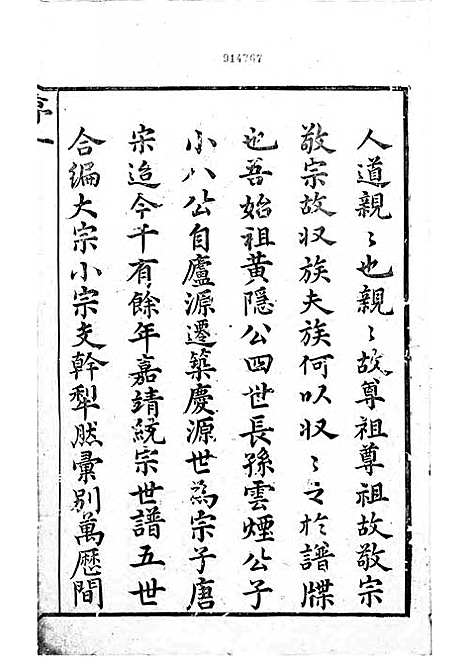 914767
人道親〻也親〻故尊祖尊祖故敬宗
敬宗故収族夫族何以収〻之於譜牒
也吾始祖黃隱公四世長孫雲煙公子
小八公自廬源遷築慶源世為宗子唐
宋迨今千有餘年嘉靖統宗世譜五世
合編大宗小宗支幹犁然彙別萬歷間
序一